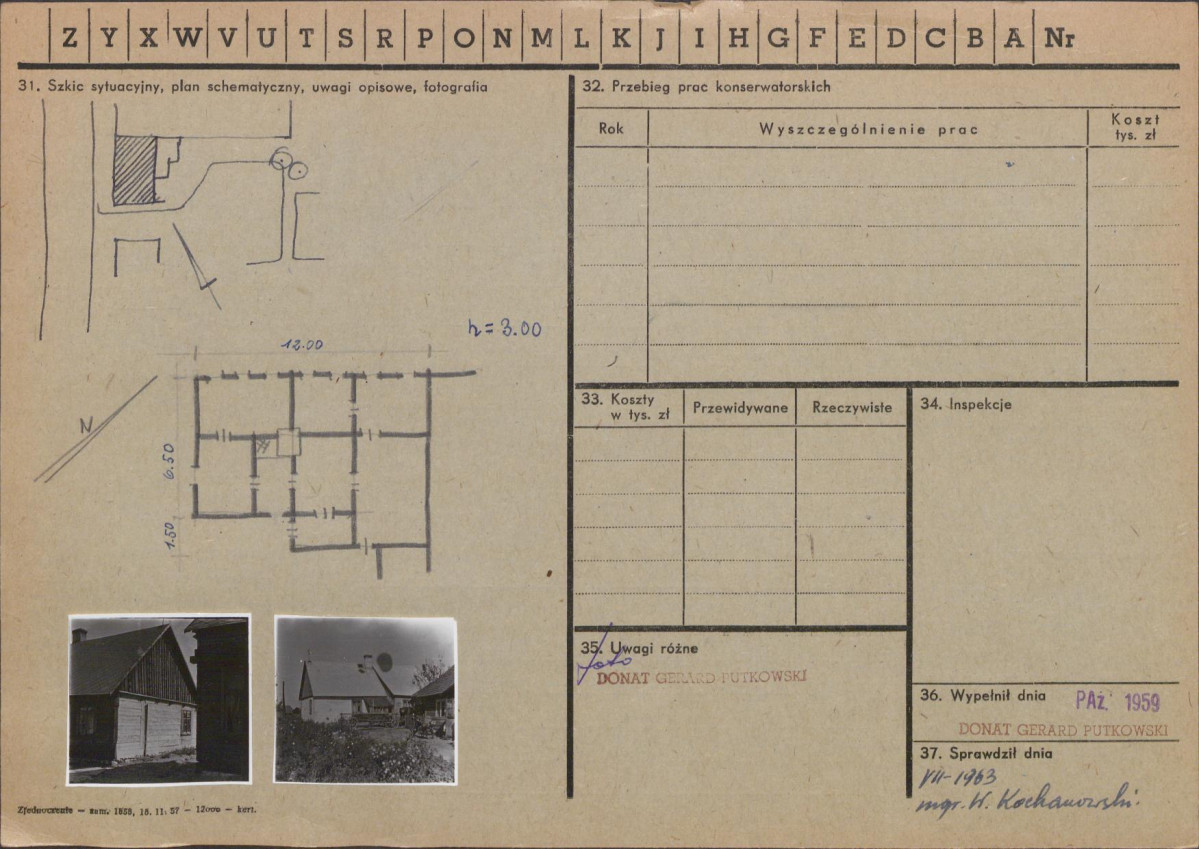 Z Y X W V U T S R P O N M L K J I H G F E D C B A Nr
31. Szkic sytuacyjny, plan schematyczny, uwagi opisowe, fotografia
h = 3.00
12.00
N
6.50
1.50
Zjednoczenie — zam. 1858, 16. 11. 57 — 12000 — kart.
32. Przebieg prac konserwatorskich
Rok
Wyszczególnienie prac
Koszt
tys. zł
33. Koszty
w tys. zł
Przewidywane
Rzeczywiste
34. Inspekcje
35. Uwagi różne
foto
DONAT GERARD PUTKOWSKI
36. Wypełnił dnia PAź. 1959
DONAT GERARD PUTKOWSKI
37. Sprawdził dnia
VII-1963
mgr. W. Kochanowski.